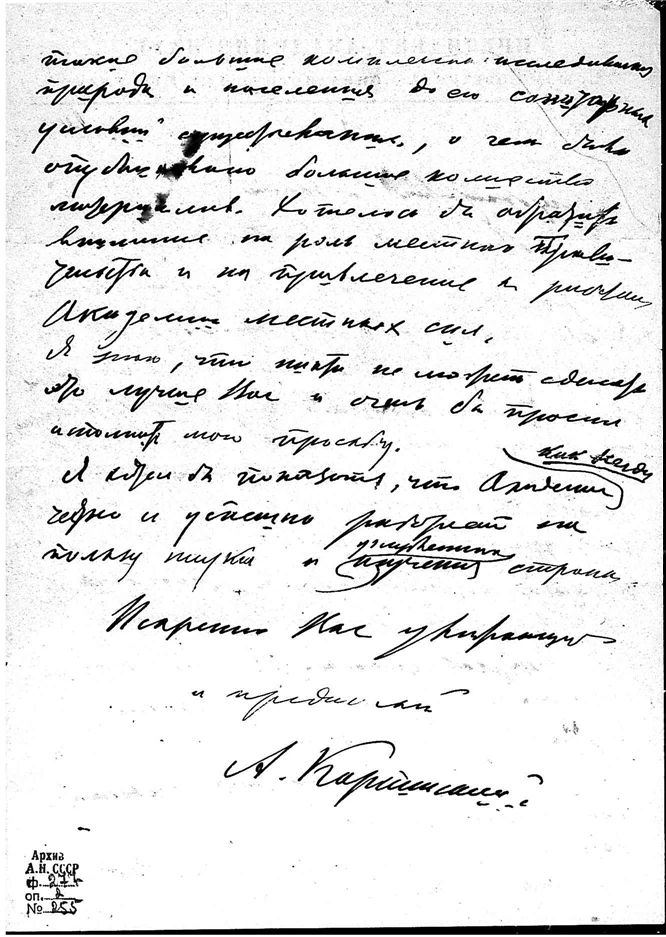 такие большие комплексные исследования
природы и населения до его санитарных
условий существования, о чем было
опубликовано большое количество
материалов. Хотелось бы обратить
внимание на роль местного Прави-
тельства и на привлечение к работам
Академии местных сил.
Я знаю, что никто не может сделать
это лучше Вас и очень бы просил
исполнить мою просьбу.
как всегда
Я хотел бы показать, что Академия
и успешно работает на
пользу науки и изучения страны
углубленного
Искренно Вас уважающий
и преданный
А. Карпинский
Архив
А.Н. СССР
ф. 277
оп. 2
№ 255